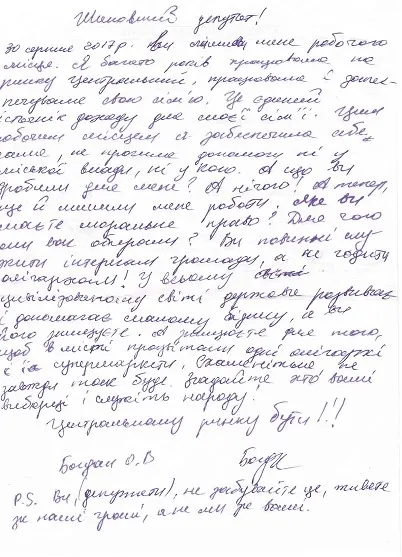 Шановний депутат!
30 серпня 2017р. Ви лишили мене робочого
місця. Я багато років працювала на
ринку Центральний, працювала і забез-
печувала свою сім'ю. Це єдиний
істочнік доходу для моєї сім'ї. Цим
робочим місцем я забеспечила себе
сама, не просила допомоги ні у
міської влади, ні у кого. А що ви
зробили для мене? А нічого! А тепер,
ще й лишили мене роботи. Яке ви
маєте моральне право? Для чого
ми вас обирали? Ви повинні слу
жити інтересам громади, а не годити
олігархам! У всьому
цивілізованому світі держава розвиває
і допомагає малому бізнесу, а ви
його знищуєте. А знищуєте для того,
щоб в місті процвітали одні олігархи
і їх супермаркети. Схаменіться не
завжди так буде. Згадайте хто ваші
виборці і служіть народу.
Центральному ринку бути!!!
Богдан О.В
P.S. Ви, (депутати), не забувайте це, живете
за наші гроші, а не ми за ваші.